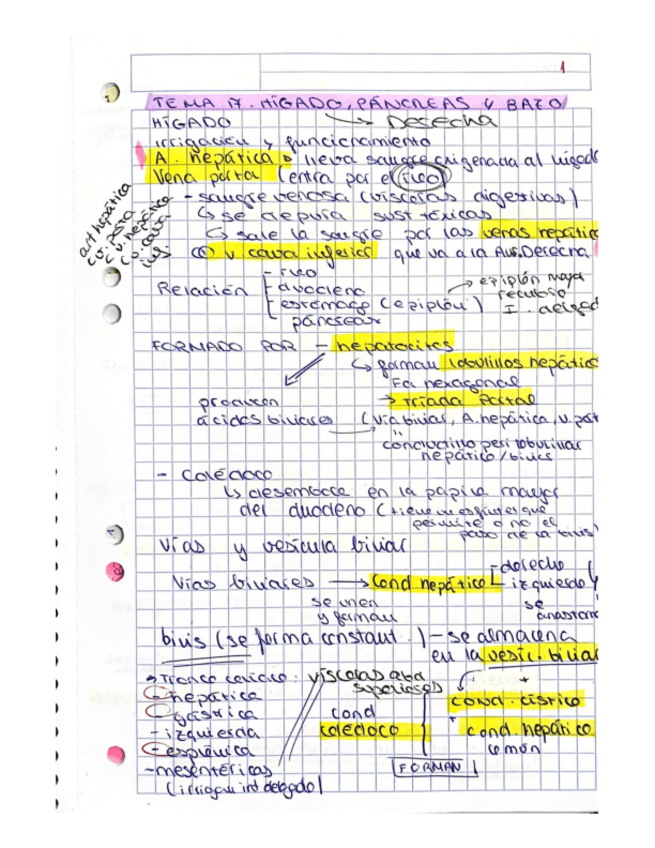 1
TEMA 17. HÍGADO, PÁNCREAS Y BAZO
HÍGADO → Derecha
irrigación y funcionamiento
A. hepática lleva sangre oxigenada al hígado
Vena porta (entra por el íleo)
- sangre venosa (vísceras digestivas)
↳ se depura sust tóxicas
↳ sale la sangre por las venas hepática
v. cava inferior que va a la Aur. Derecha
art hepática
v. porta
v. hepática
v. cava
inf
Relación - íleo
- duodeno
- estómago (epiplón) → epiplón mayor
páncreas
FORMADO POR - hepatocitos
↳ forman lobulillos hepático
Fa hexagonal
→ Triada Portal
producen
ácidos biliares (Vía biliar, A. hepática, v. port
conductillo perilobulillar
hepático/biliis
- Colédoco
↳ desemboca en la papila mayor
del duodeno (tiene un esfínter que
permite o no el
paso de la bilis)
Vías y vesícula biliar
Vías biliares → Cond hepático - derecho
izquierdo
se unen
y forman
se
anastom
bilis (se forma constant.) - se almacena
en la vesíc. biliar
→ Tronco celíaco: vísceras abd
superiores
- hepática
- gástrica
- izquierda
- esplénica
- mesentéricas
(irrigan int delgado)
cond
colédoco
+
cond. cístico
+
cond. hepático
común
FORMAN